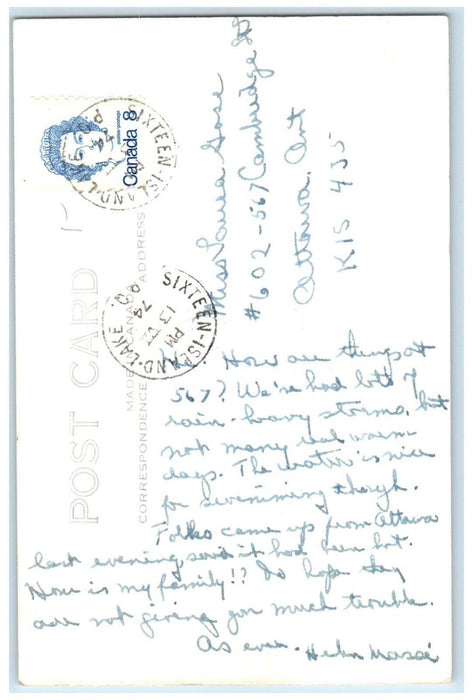 Canada 8
SIXTEEN-ISLAND-LAKE
SIXTEEN-ISLAND-LAKE P.Q.
PM
13 VII
74
POST CARD
MADE IN CANADA
CORRESPONDENCE
ADDRESS
Miss Laura Gose
#602-567 Cambridge St
Ottawa, Ont
K1S 4J5
Hi. How are things at
567? We've had lots of
rain-heavy storms, but
not many real warm
days. The water is nice
for swimming though.
Folks came up from Ottawa
last evening said it had been hot.
How is my family!? Do hope they
are not giving you much trouble.
As ever. Helen Massé